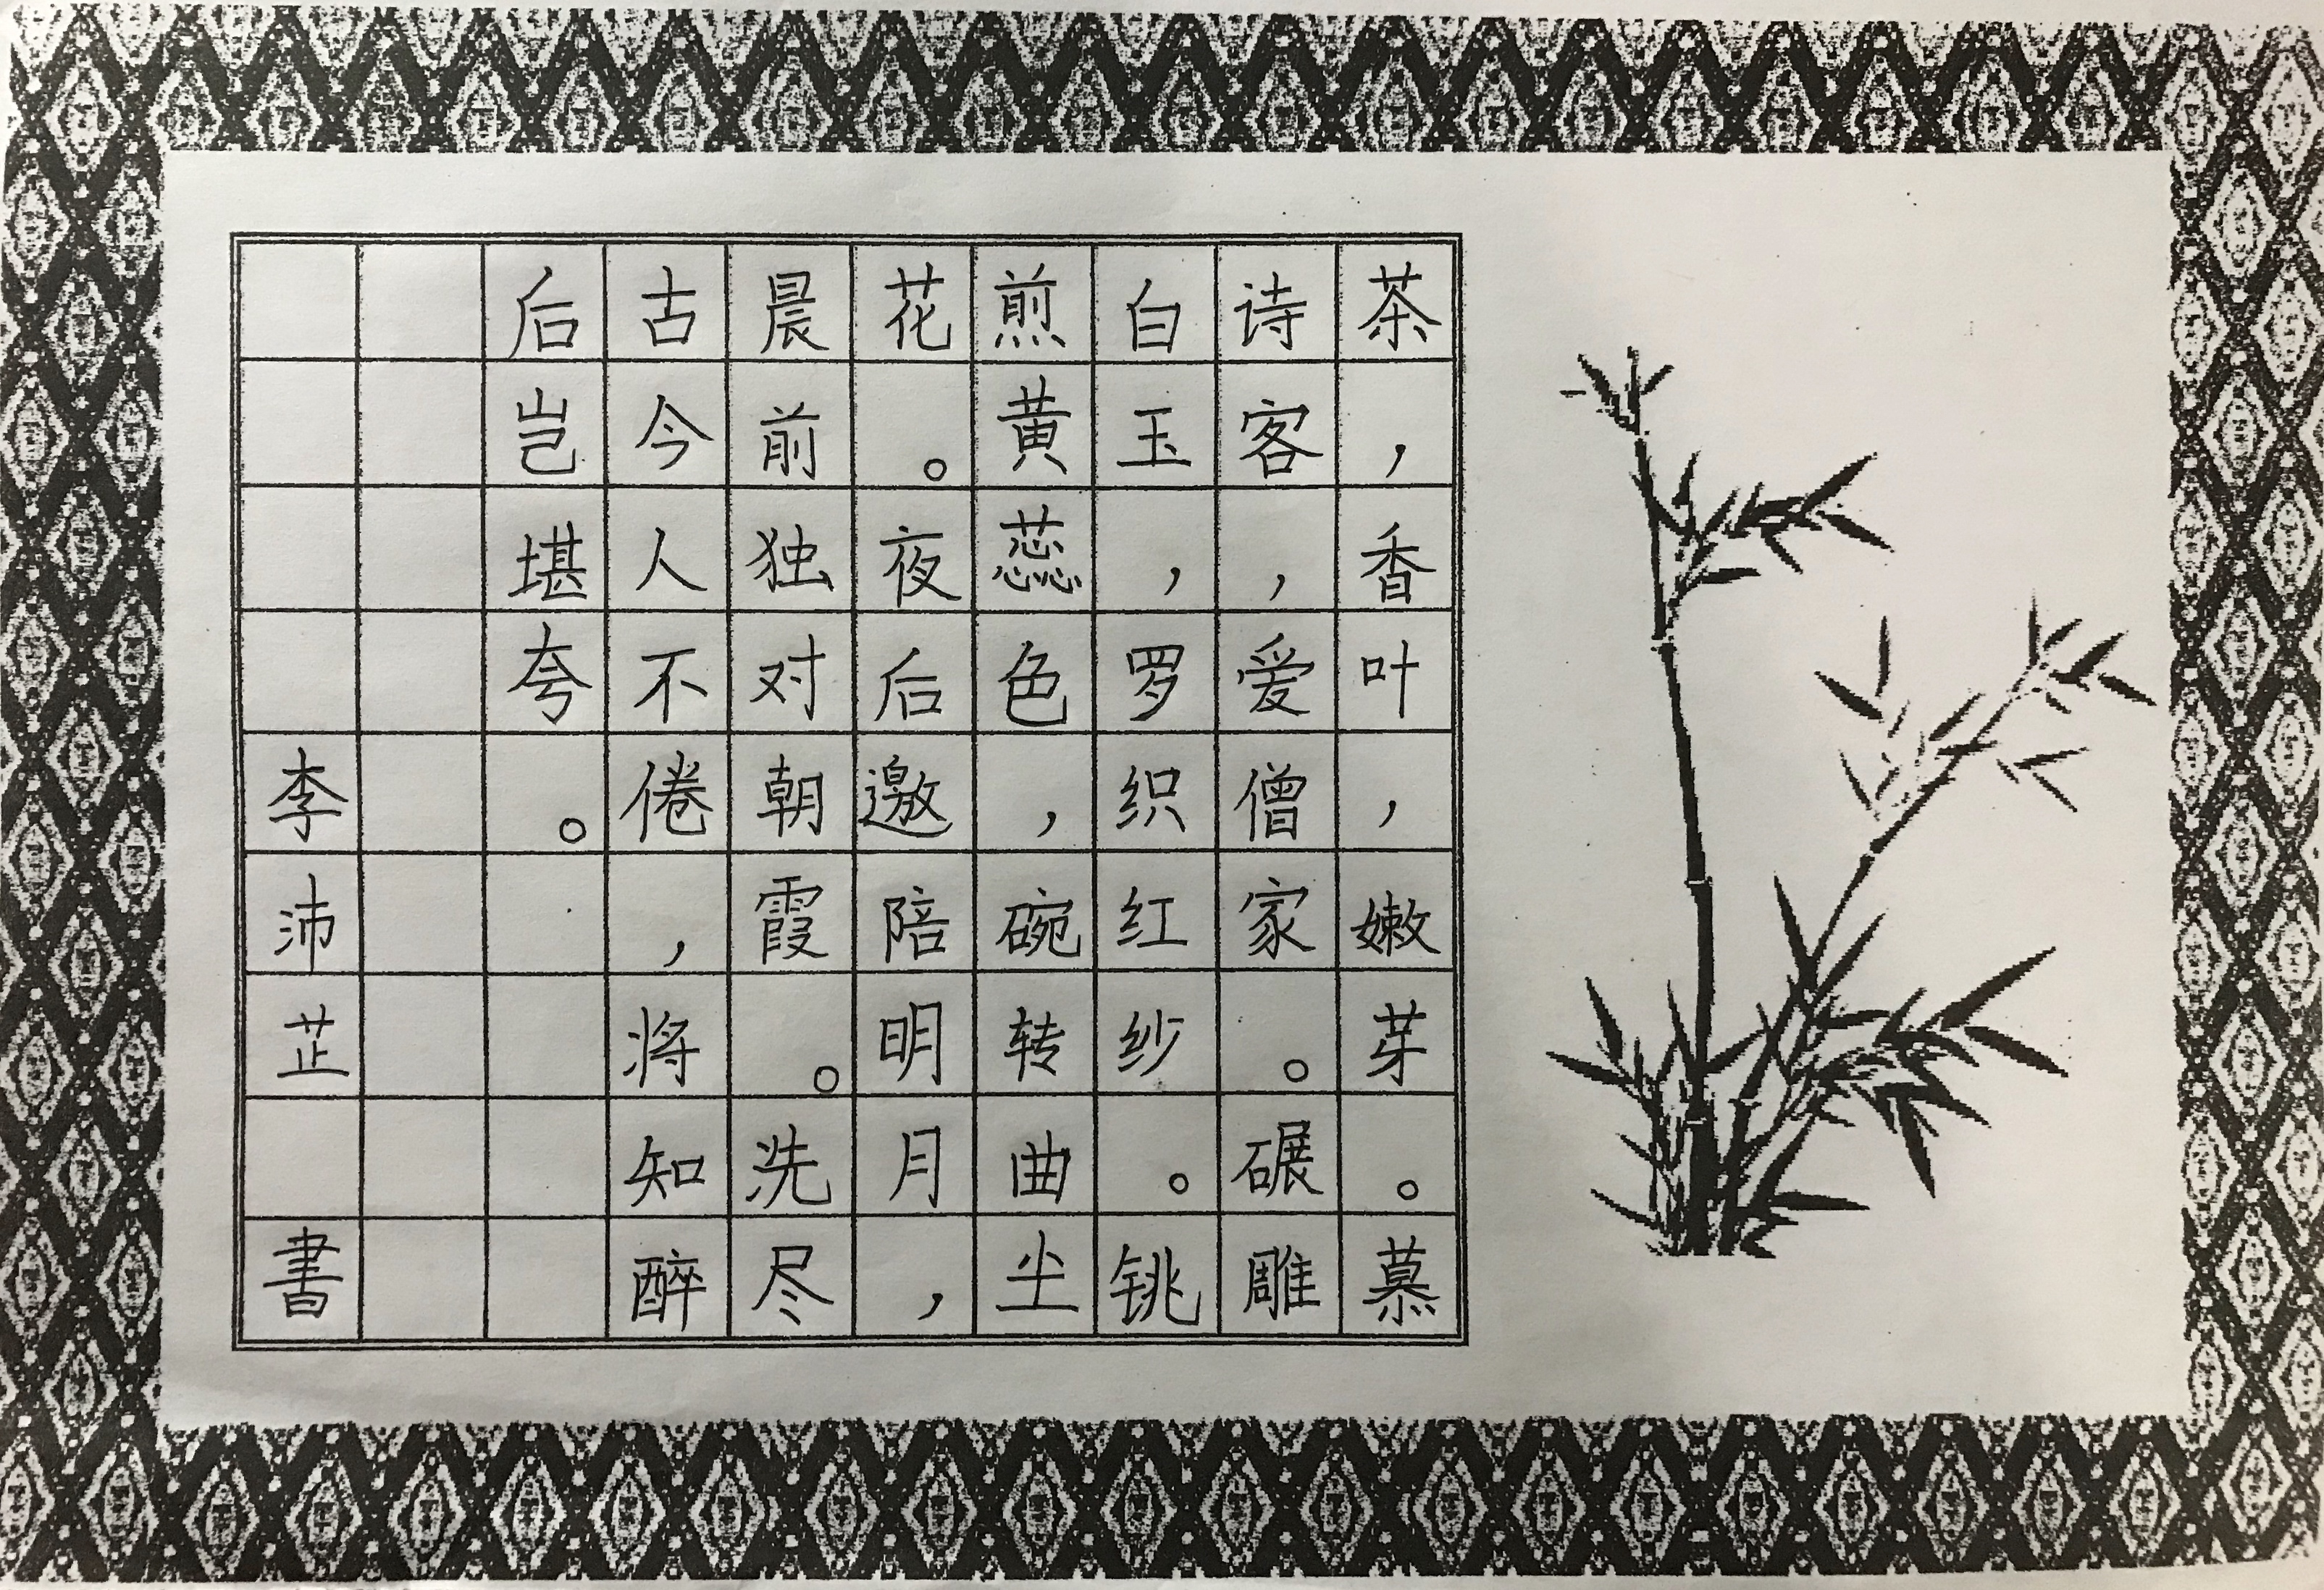 茶，香叶，嫩芽。慕
诗客，爱僧家。碾雕
白玉，罗织红纱。铫
煎黄蕊色，碗转曲尘
花。夜后邀陪明月，
晨前独对朝霞。洗尽
古今人不倦，将知醉
后岂堪夸。
李沛芷書